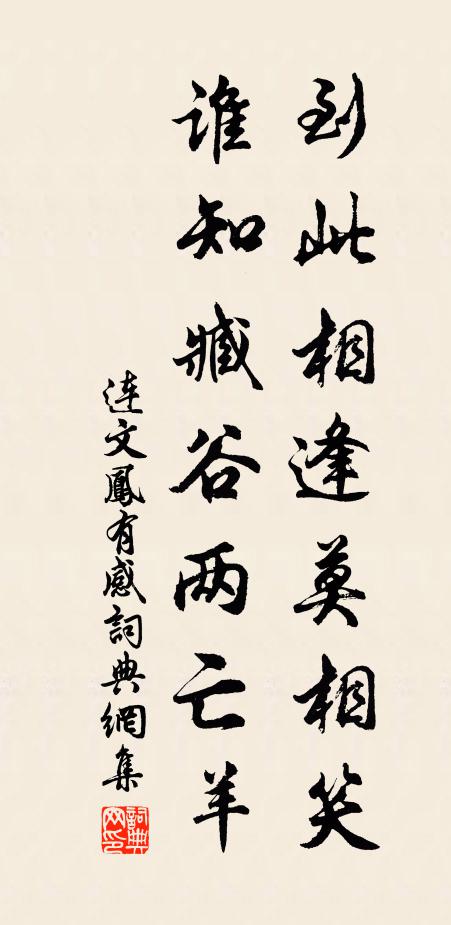 到此相逢莫相笑
谁知臧谷两亡羊
连文鳳有感詞典網集
詞典网印